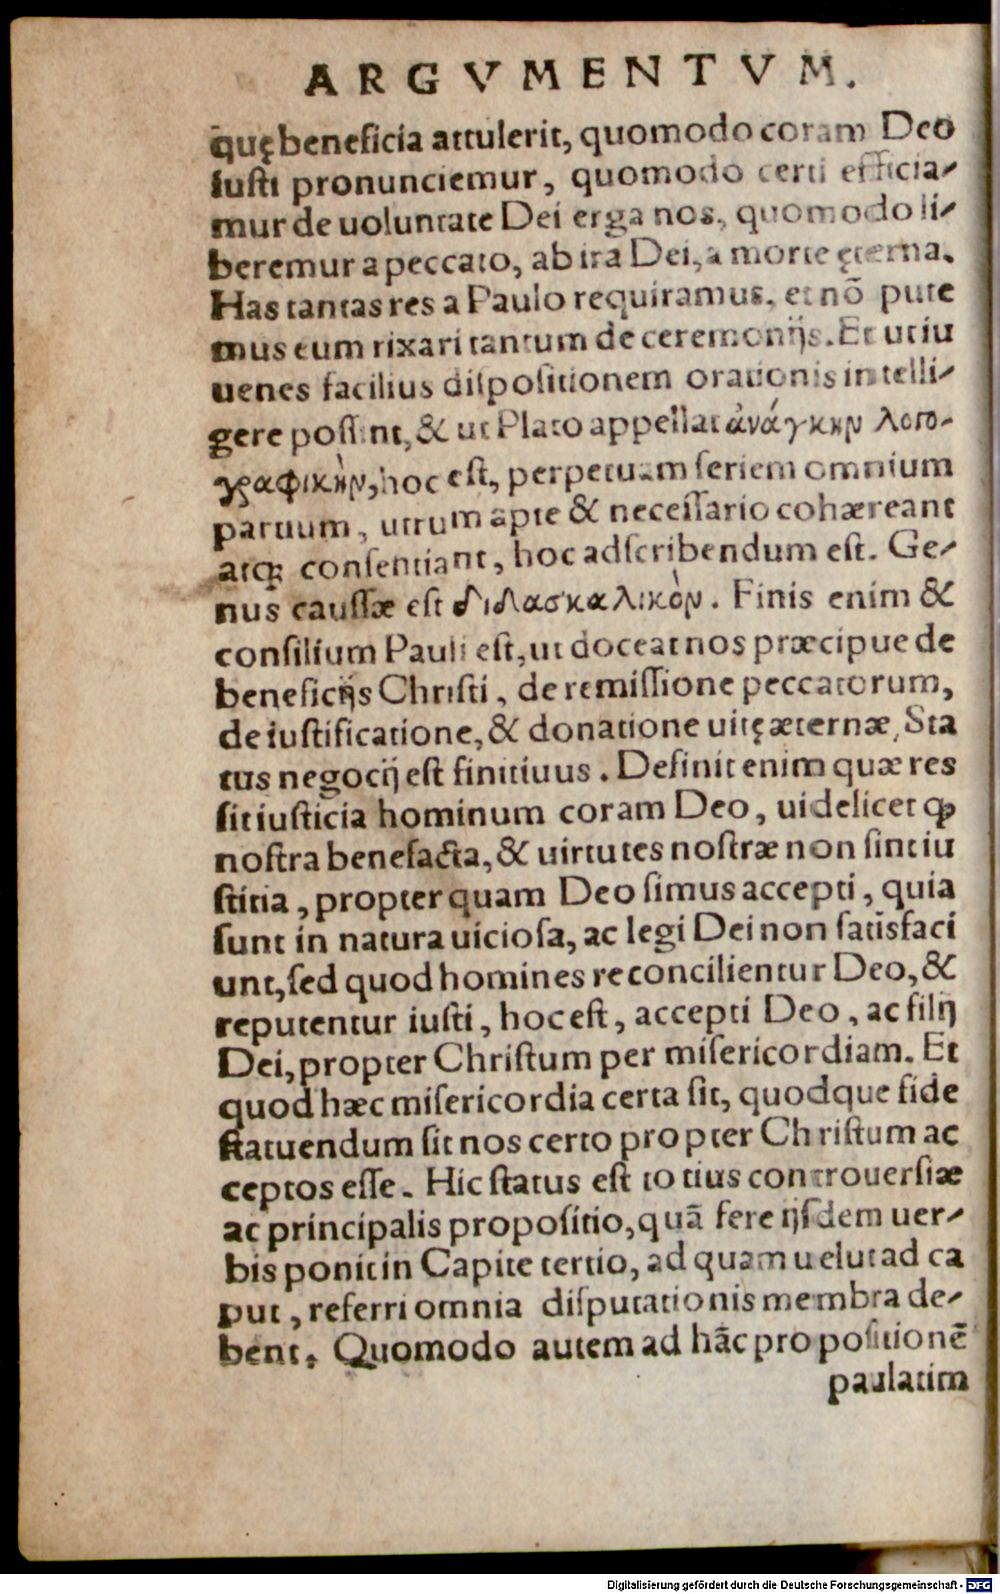 ARGVMENTVM.
quę beneficia attulerit, quomodo coram Deo
iusti pronunciemur, quomodo certi efficia-
mur de uoluntate Dei erga nos, quomodo li-
beremur a peccato, ab ira Dei, a morte ęterna.
Has tantas res a Paulo requiramus, et nō pute
mus eum rixari tantum de ceremonijs. Et ut iu
uenes facilius dispositionem orationis intelli-
gere possint, & ut Plato appellat ἀνάγκην λογο-
γραφικὴν, hoc est, perpetuam seriem omnium
partium, utrum apte & necessario cohæreant
atq; consentiant, hoc adscribendum est. Ge-
nus caussæ est διδασκαλικὸν. Finis enim &
consilium Pauli est, ut doceat nos præcipue de
beneficijs Christi, de remissione peccatorum,
de iustificatione, & donatione uitę æternæ, Sta
tus negocij est finitiuus. Definit enim quæ res
sit iusticia hominum coram Deo, uidelicet ꝙ
nostra benefacta, & uirtutes nostræ non sint iu
stitia, propter quam Deo simus accepti, quia
sunt in natura uiciosa, ac legi Dei non satisfaci
unt, sed quod homines reconcilientur Deo, &
reputentur iusti, hoc est, accepti Deo, ac filij
Dei, propter Christum per misericordiam. Et
quod hæc misericordia certa sit, quodque fide
statuendum sit nos certo propter Christum ac
ceptos esse. Hic status est totius controuersiæ
ac principalis propositio, quā fere ijsdem uer-
bis ponit in Capite tertio, ad quam uelut ad ca
put, referri omnia disputationis membra de-
bent. Quomodo autem ad hāc propositionē
paulatim
Digitalisierung gefördert durch die Deutsche Forschungsgemeinschaft - DFG